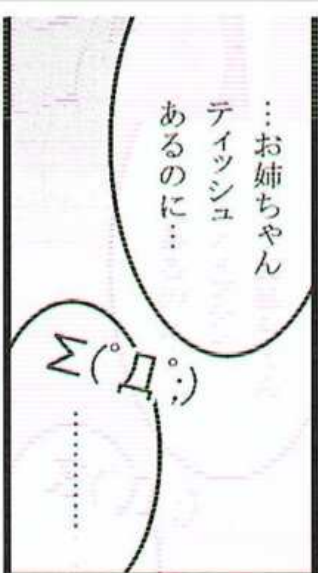 …お姉ちゃん
ティッシュ
あるのに…
Σ(゚Д゚;)
………